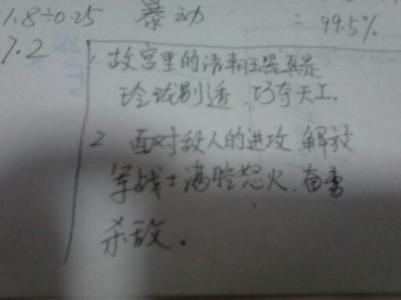 1.8÷0.25 暴动 = 99.5%
7.2
1. 故宫里的清朝玉器真是
玲珑剔透,巧夺天工.
2 面对敌人的进攻,解放
军战士满腔怒火,奋勇
杀敌.